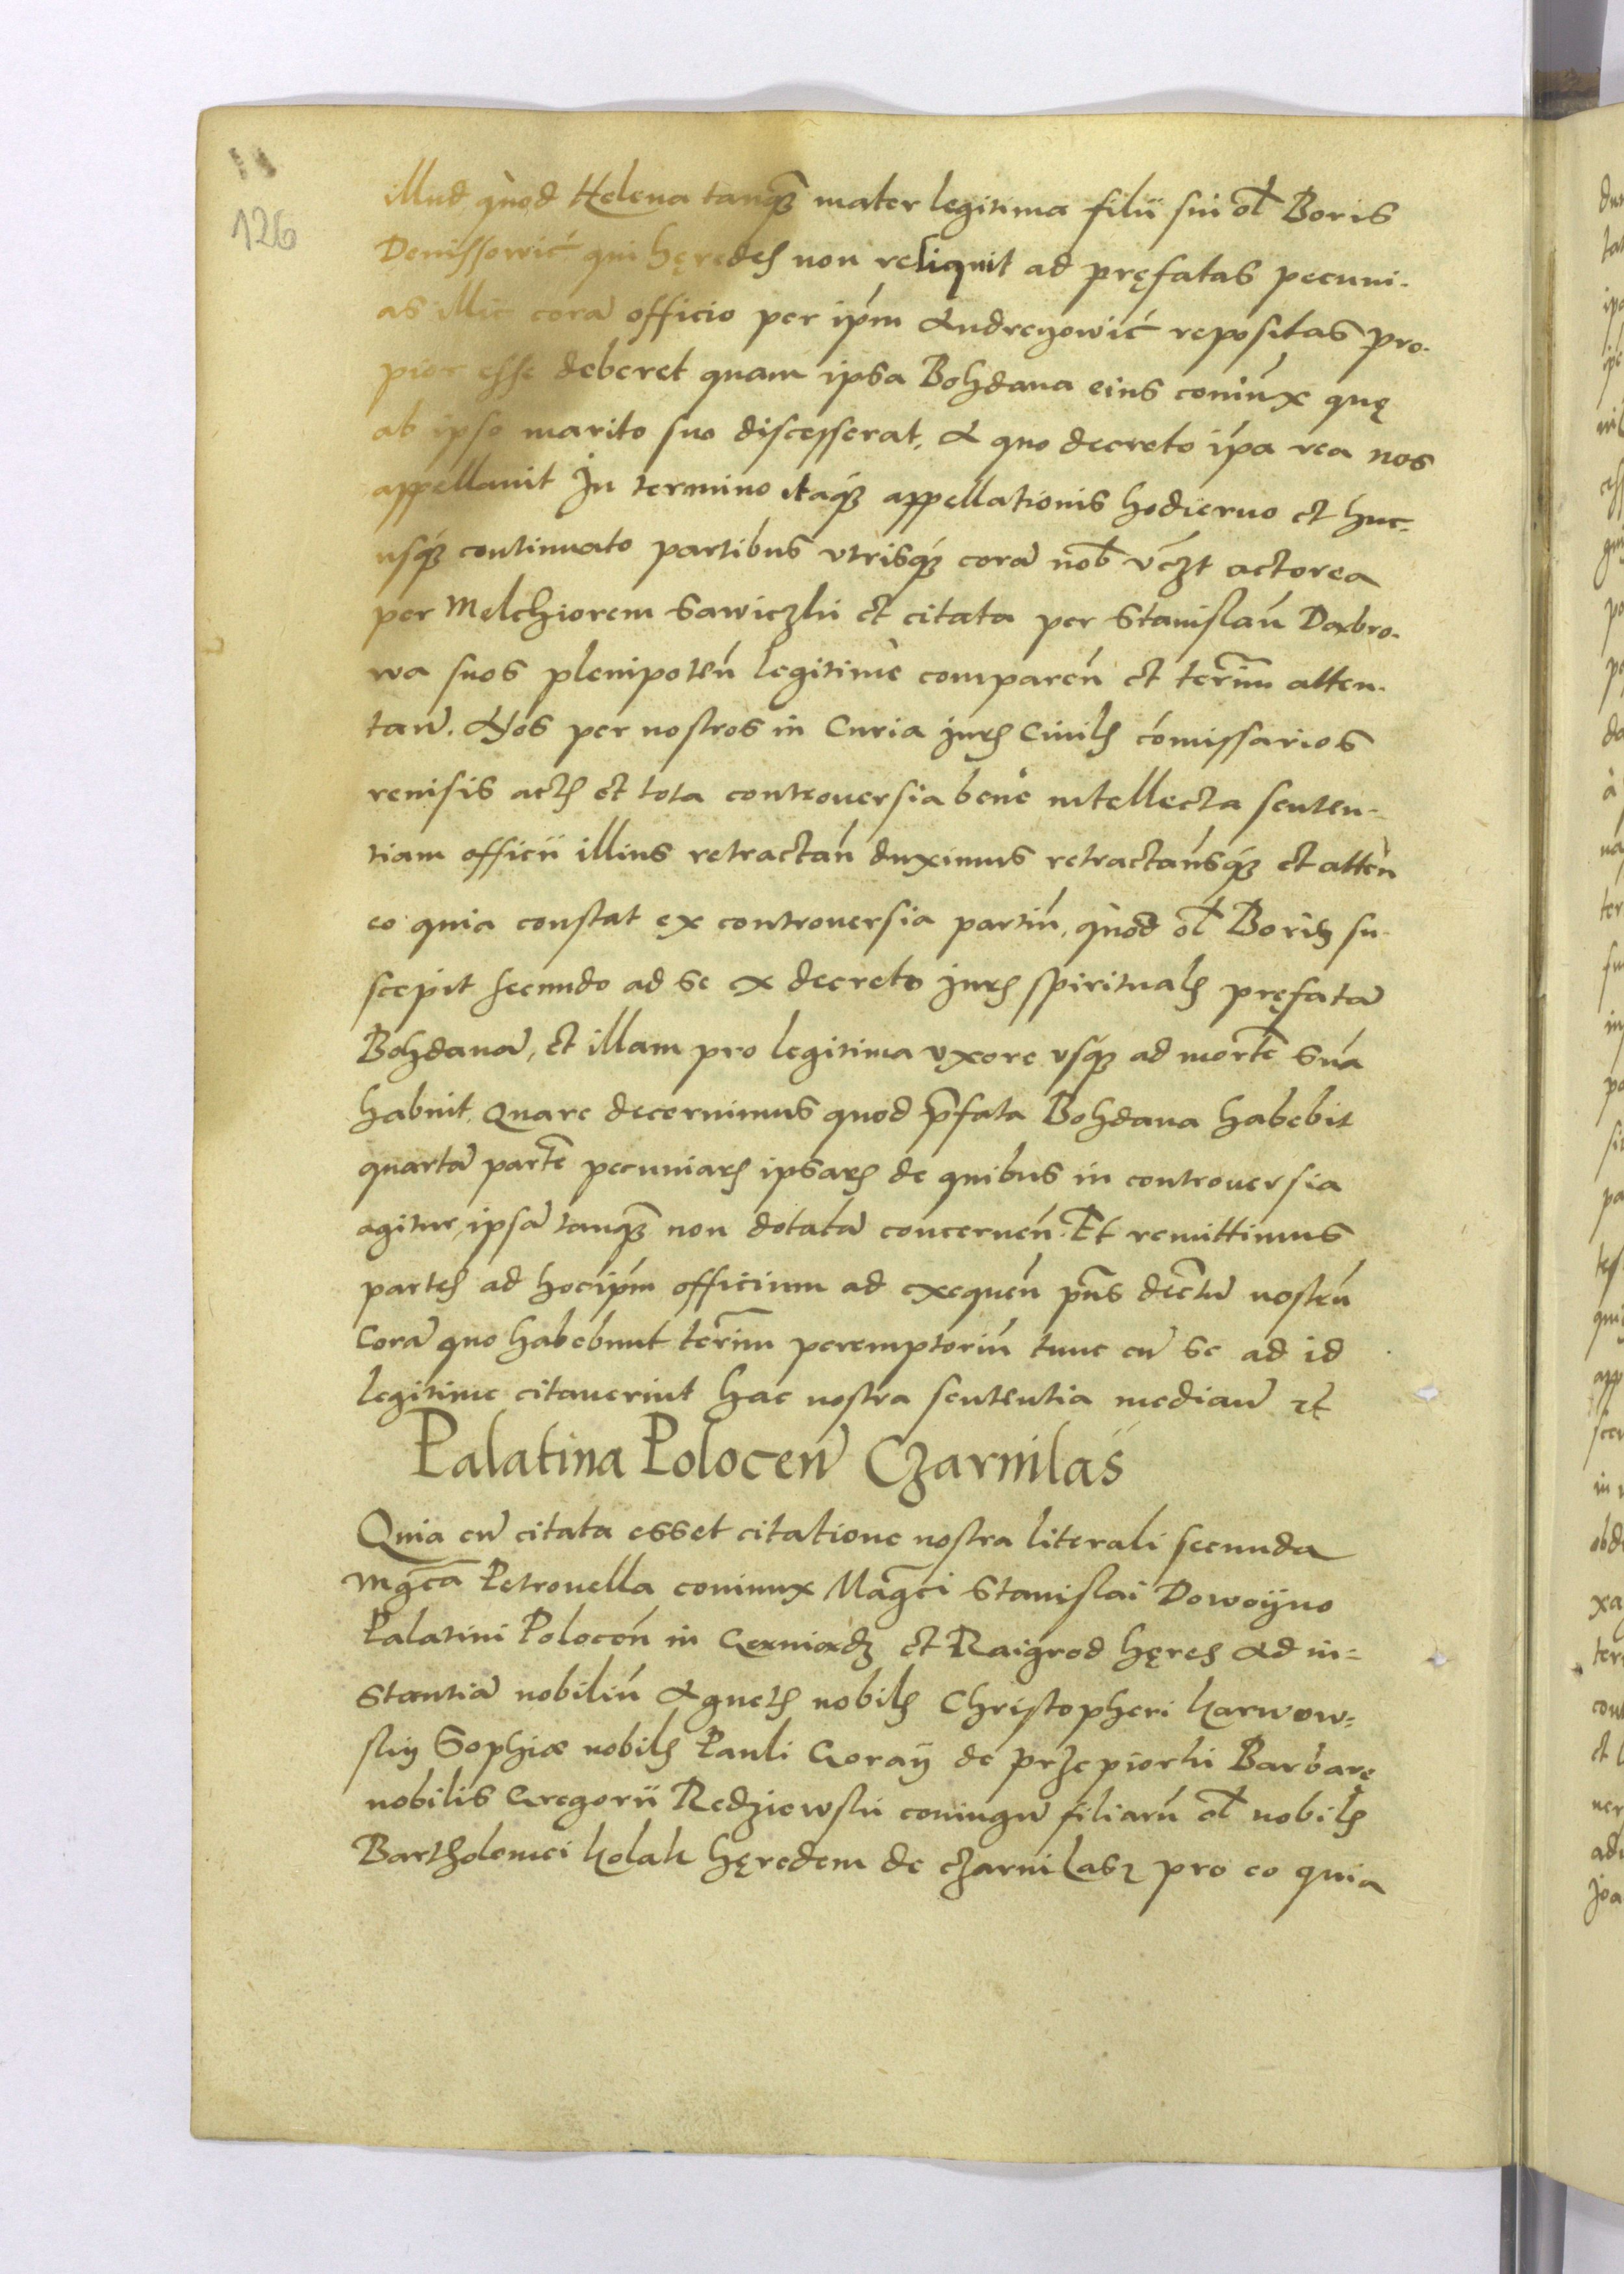 126
illud quod Helena tanq3 mater legitima filii sui ol Boris
Denissowic qui hęredes non reliquit ad pręfatas pecuni-
as illic corā officio per ipm Andreyowic repositas pro-
pior esse deberet quam ipsa Bohdana eius coniux quę
ab ipso marito suo discesserat, A quo decreto ipa rea nos
appellauit In termino itaq3 appellationis hodierno et huc-
usq3 continuato partibus vtrisq3 corā nob vczt actorea
per Melchiorem Sawiczki et citata per Stanislaū Dąbro-
wa suos plenipoteñ legitimè compareñ et termm atten-
tañ. Nos per nostros in Curia juris Ciuilis comissarios
reuisis actis et tota controuersia benè intellecta senten-
tiam officii illius retractañ duximus retractamusq3 et atteñ
eo quia constat ex controuersia partiū, quod ol Boris su-
scepit secundo ad se ex decreto juris spiritualis pręfatā
Bohdanā, et illam pro legitima vxore vsq3 ad mortē suā
habuit, Quare decernimus quod pfata Bohdana habebit
quartā partē pecuniarum ipsarum de quibus in controuersia
agitur, ipsā tanq3 non dotatā concerneñ. Et remittimus
partes ad hocipm officium ad exequeñ pns dectū nostrū
Corā quo habebunt termm peremptoriū tunc cū se ad id
legitime citauerint hac nostra sententia mediañ etc
Palatina Poloceñ Czarnilas
Quia cū citata esset citatione nostra literali secunda
Mgca Petronella coniunx Magci Stanislai Dowoyno
Palatini Poloceñ in Gerniądz et Raigrod hęres Ad in-
stantiā nobiliū Agnetis nobilis Christopheri Karwow-
skij Sophiæ nobilis Pauli Goraij de Przepiorki Barbarę
nobilis Gregorii Redziewski coniugū filiarū ol nobilis
Bartholomei Kolak hęredem de Czarnilas, pro eo quia